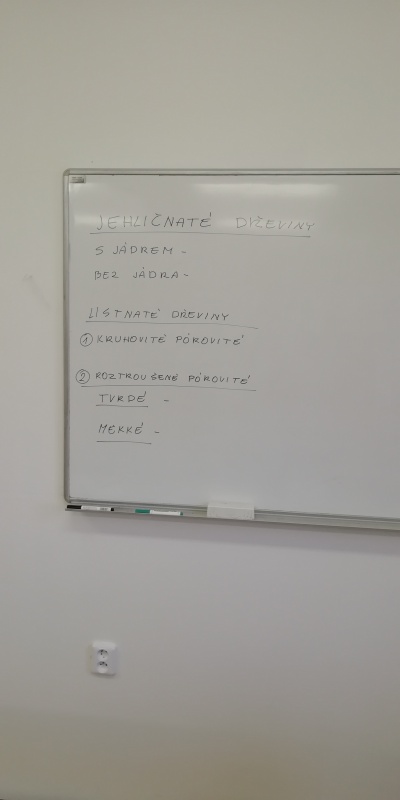 JEHLIČNATÉ DŘEVINY
S JÁDREM -
BEZ JÁDRA -
LISTNATÉ DŘEVINY
① KRUHOVITĚ PÓROVITÉ
② ROZTROUŠENĚ PÓROVITÉ
TVRDÉ -
MĚKKÉ -